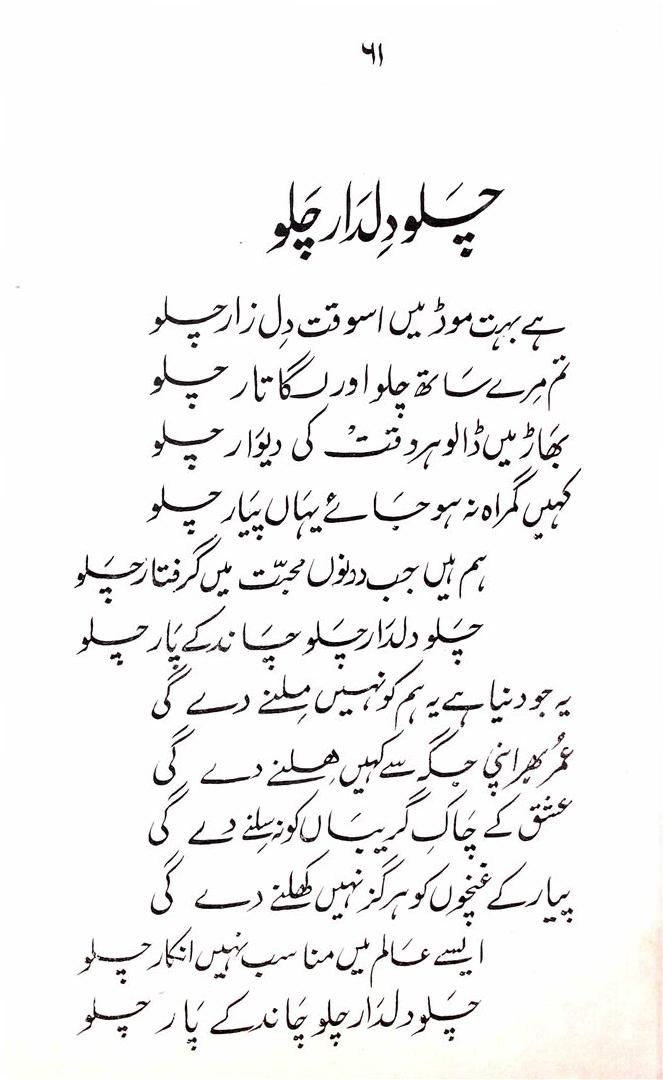 ۶۱
چلو دِلدار چلو
ہے بہت موڈ میں اسوقت دِل زار چلو
تم مِرے ساتھ چلو اور لگاتار چلو
بھاڑ میں ڈالو ہر دقت کی دیوار چلو
کہیں گمراہ نہ ہو جائے یہاں پیار چلو
ہم ہیں جب دونوں محبّت میں گرفتار چلو
چلو دلدار چلو چاند کے پار چلو
یہ جو دنیا ہے یہ ہم کو نہیں مِلنے دے گی
عمُر بھر اپنی جگہ سے کہیں ھِلنے دے گی
عشق کے چاکِ گریباں کو نہ سِلنے دے گی
پیار کے غنچوں کو ہرگز نہیں کھلنے دے گی
ایسے عالم میں مناسب نہیں انکار چلو
چلو دلدار چلو چاند کے پار چلو